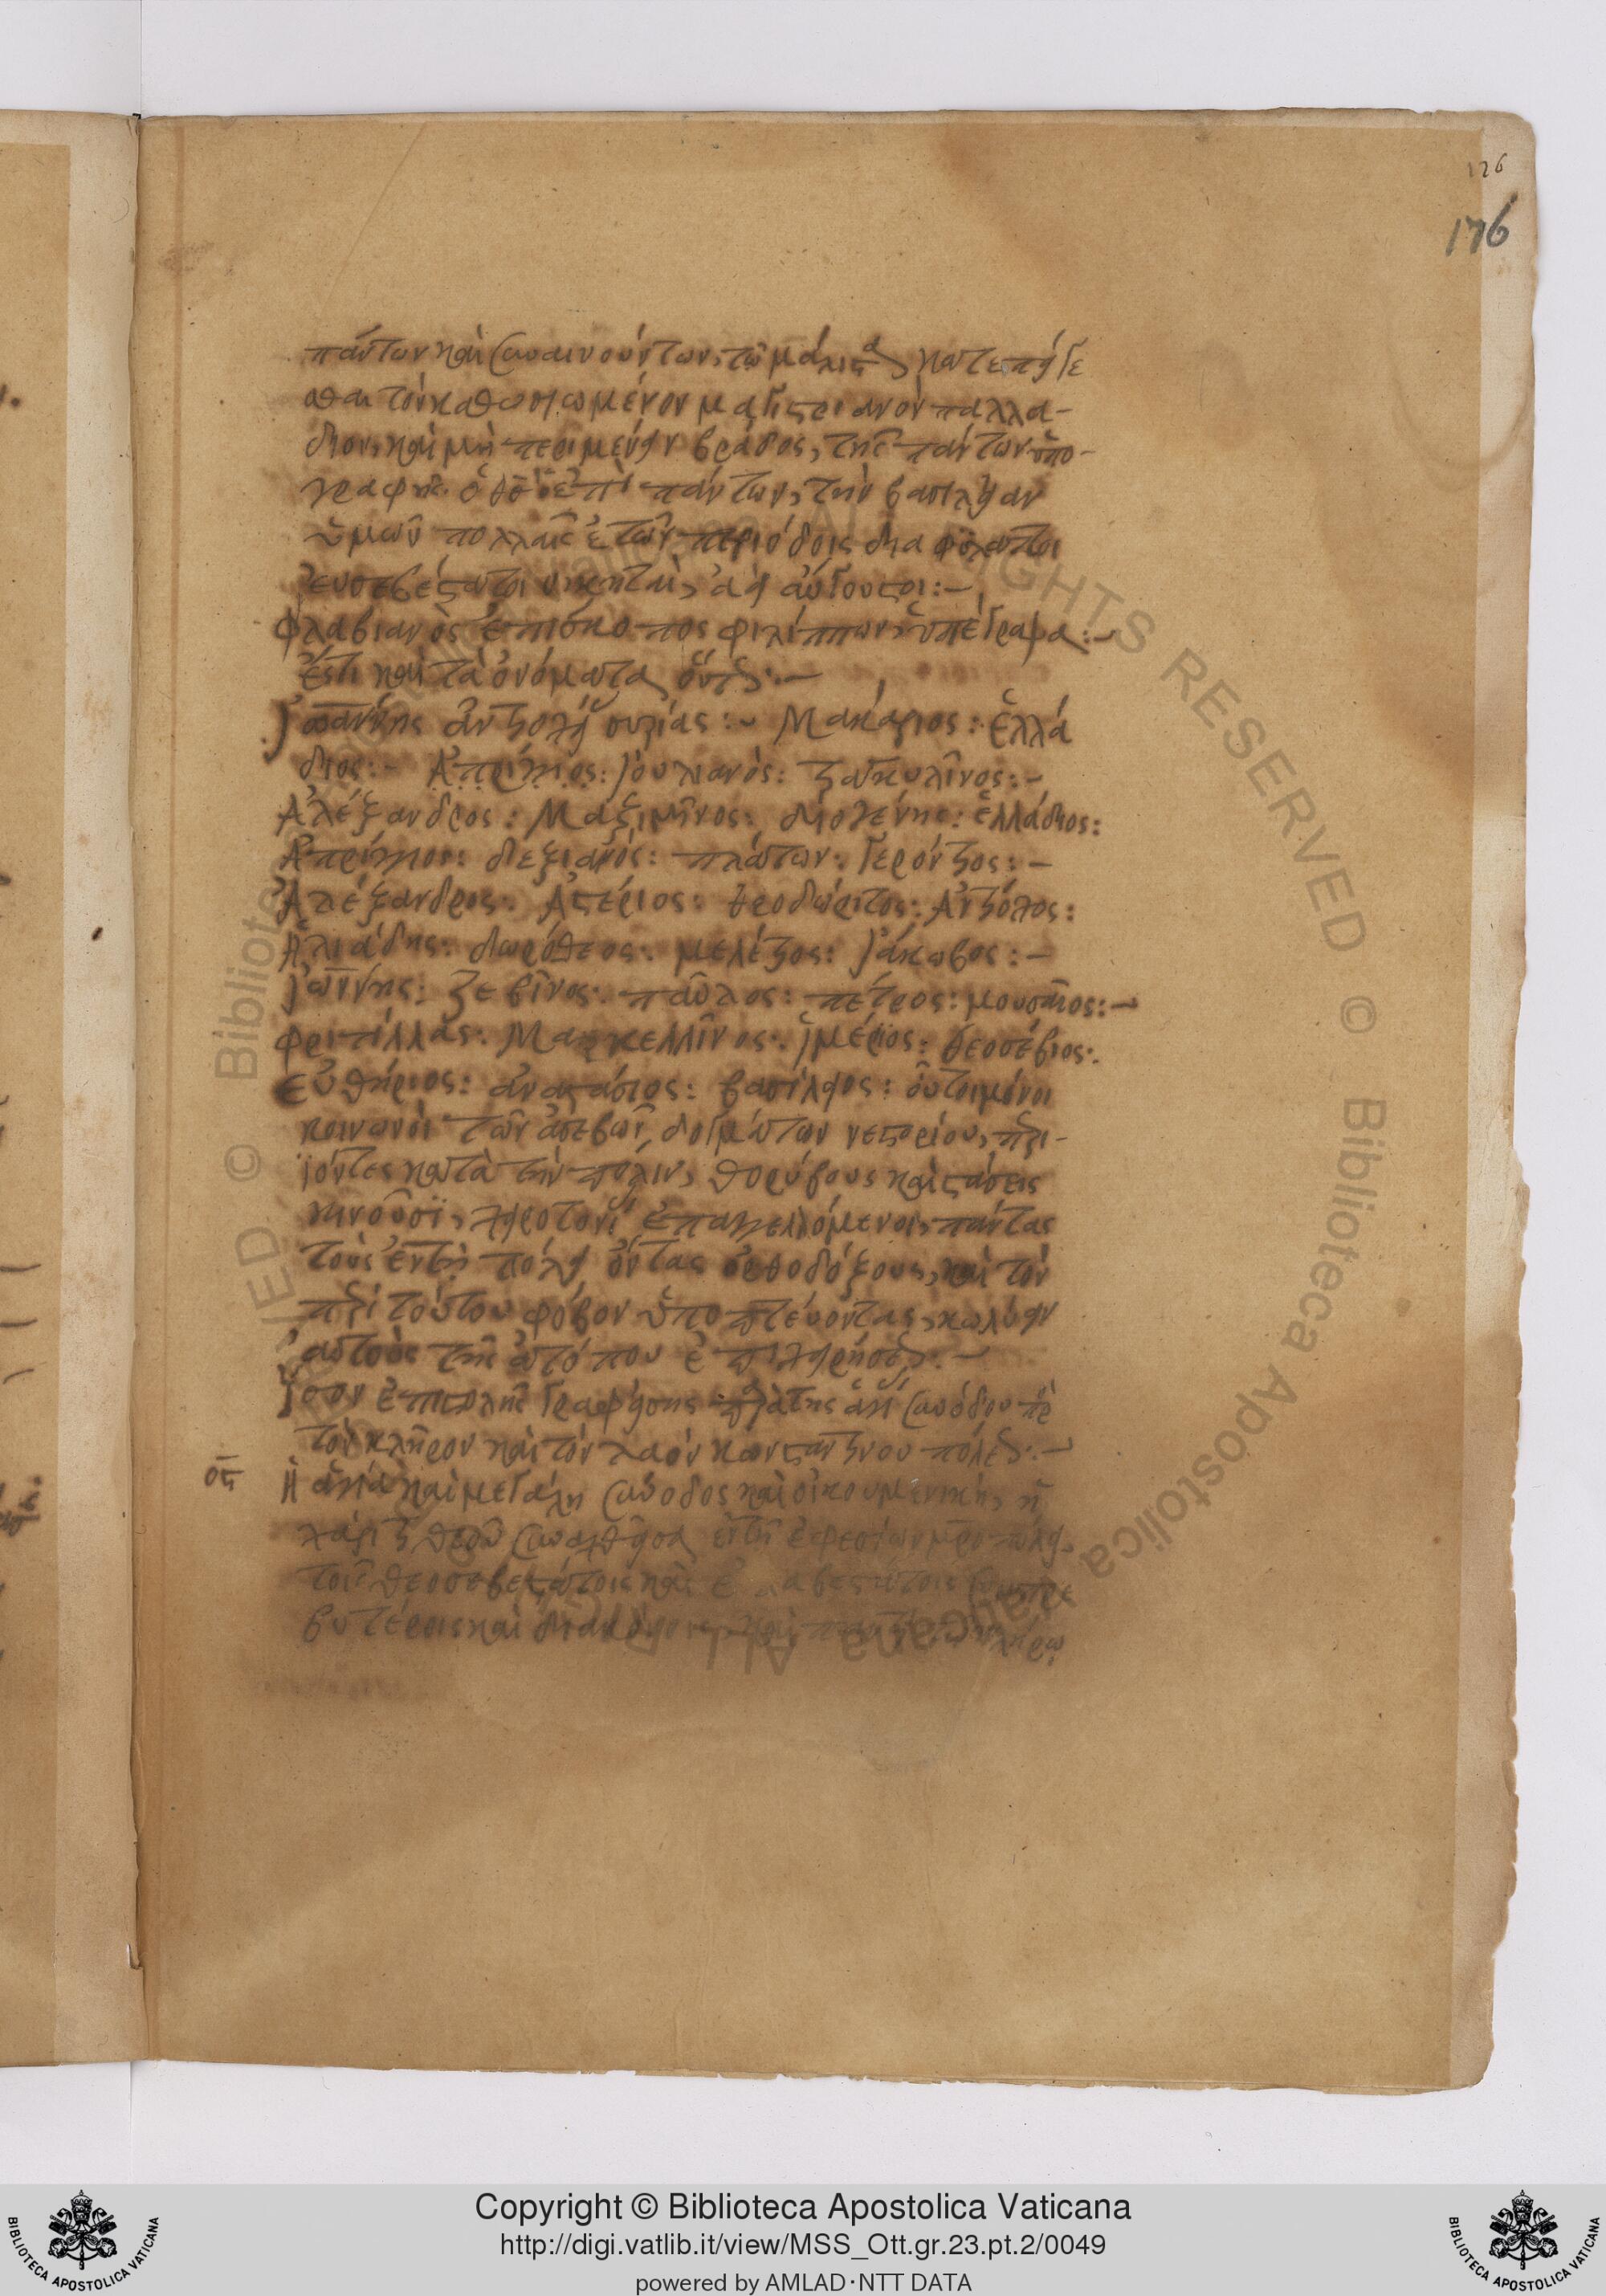 126
176
πάντων καὶ συναινούντων, τῶ μάλιστα κατεπείγε
σθαι τὸν καθωσιωμένον μαγιστριανὸν παλλά-
διον, καὶ μὴ περιμένειν βράδος, τῆς πάντων ὑπο-
γραφῆς. ὁ θς ὁ ἐπὶ πάντων, τὴν βασιλείαν
ὑμῶν πολλαῖς ἐτῶν περιόδοις διαφυλάττοι
εὐσεβέστατοι νικηταὶ, ἀεὶ αὔγουστοι:-
Φλαβιανὸς ἐπίσκοπος φιλίππων ὑπέγραψα:-
ἔστι καὶ τὰ ὀνόματα οὕτως:-
Ἰωάννης ἀντιοχείας συρίας:- Μακάριος: Ἑλλά
διος:- Ἀπρίγγιος: Ἰουλιανός: ταυκυλῖνος:-
Ἀλέξανδρος: Μαξιμῖνος: διογένης: ἑλλάδιος:
Ἀπρίγγιος: δεξιανός: πλάτων: Γερόντιος:-
Ἀλέξανδρος: Ἀστέριος: θεοδώριτος: Ἀντίοχος:
Ἡλιάδης: δωρόθεος: μελέτιος: Ἰάκωβος:-
Ἰωάννης: ζεβῖνος: παῦλος: πέτρος: μουσαῖος:-
Φριτίλλας: Μαρκελλῖνος: ἱμέριος: θεοσέβιος:
Εὐθήριος: ἀναστάσιος: βασίλειος: οὗτοι μόνοι
κοινωνοὶ τῶν ἀσεβῶν δογμάτων νεστορίου, περι-
ϊόντες κατὰ τὴν πόλιν, θορύβους καὶ στάσεις
κινοῦσι, χειροτονεῖν ἐπαγγελλόμενοι, πάντας
τοὺς ἐν τῆ πόλει ὄντας ὀρθοδόξους, καὶ τὸν
περὶ τούτου φόβον ὑποπτεύοντας, κωλύειν
αὐτοὺς τῆς ἀτόπου ἐπιχειρήσεως:-
Ἴσον ἐπιστολῆς γραφείσης παρὰ τῆς ἁγίας συνόδου πρὸς
τὸν κλῆρον καὶ τὸν λαὸν κωνσταντίνου πόλεως:-
Ἡ ἁγία καὶ μεγάλη σύνοδος καὶ οἰκουμενικὴ, ἡ
χάριτι θεοῦ συναχθεῖσα ἐν τῆ ἐφεσίων μητροπόλει,
τοῖς θεοσεβεστάτοις καὶ εὐλαβεστάτοις πρε
βυτέροις καὶ διακόνοις, καὶ παντὶ τῶ κλήρω
Copyright © Biblioteca Apostolica Vaticana
http://digi.vatlib.it/view/MSS_Ott.gr.23.pt.2/0049
powered by AMLAD·NTT DATA
BIBLIOTECA APOSTOLICA VATICANA
BIBLIOTECA APOSTOLICA VATICANA